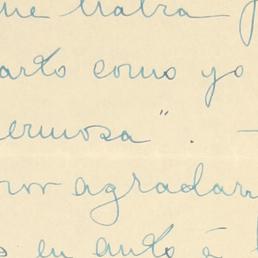 ue habra
arto como yo
ermosa". -
ror agradar
s en auto á